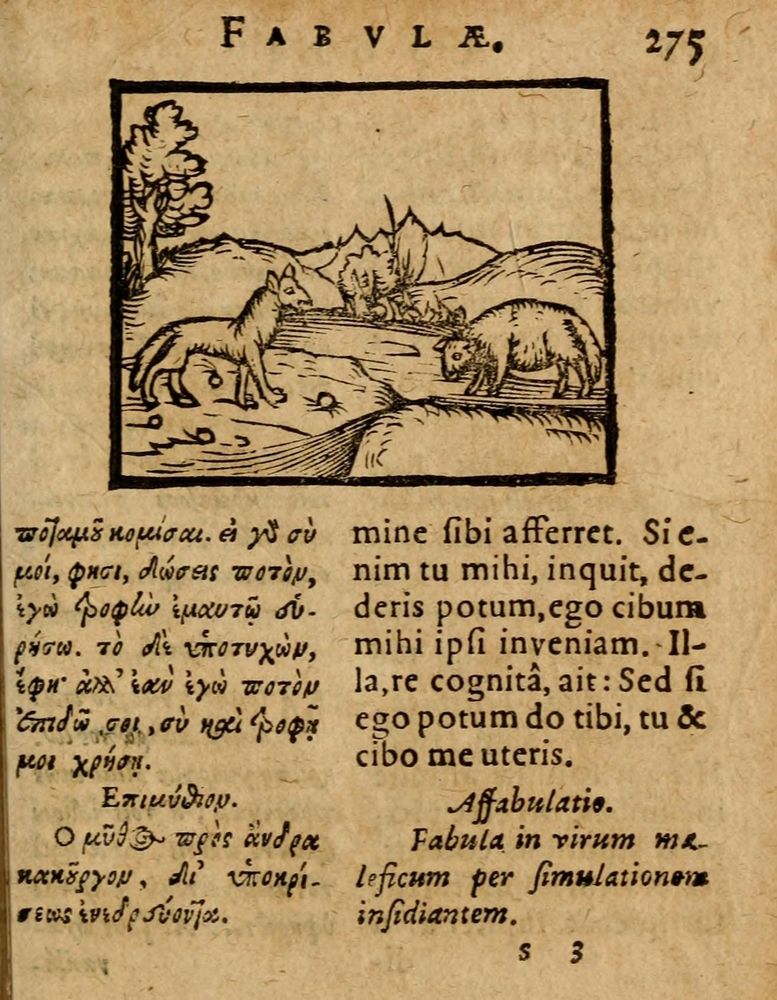 FABVLÆ.
275
ποταμοῦ κομίσαι. εἰ γὰρ σὺ
μοί, φησι, δώσεις ποτὸν,
ἐγὼ τροφὴν ἐμαυτῷ εὑ-
ρήσω. τὸ δὲ ὑποτυχὼν,
ἔφη· ἀλλ' ἐὰν ἐγὼ ποτὸν
ἐπιδῶ σοι, σὺ καὶ τροφῇ
μοι χρήσῃ.
Επιμύθιον.
Ο μῦθος πρὸς ἄνδρα
κακοῦργον, δι' ὑποκρί-
σεως ἐνεδρεύοντα.
mine ſibi afferret. Si e-
nim tu mihi, inquit, de-
deris potum, ego cibum
mihi ipſi inveniam. Il-
la, re cognitâ, ait: Sed ſi
ego potum do tibi, tu &
cibo me uteris.
Affabulatio.
Fabula in virum ma-
leficum per ſimulationem
inſidiantem.
s 3